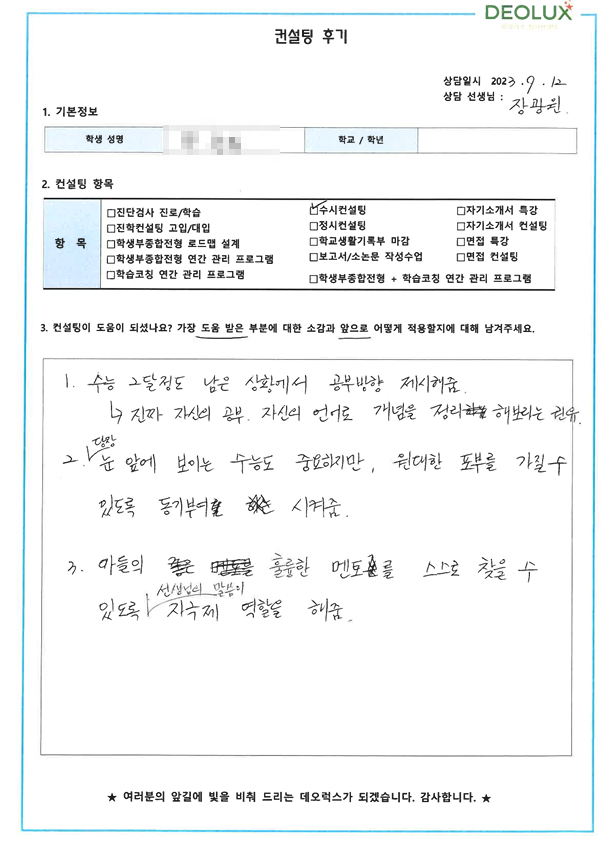 DEOLUX
컨설팅 후기
상담일시 2023. 9. 12
상담 선생님 : 장광원.
1. 기본정보
학생 성명
학교 / 학년
2. 컨설팅 항목
항 목
□진단검사 진로/학습
□진학컨설팅 고입/대입
□학생부종합전형 로드맵 설계
□학생부종합전형 연간 관리 프로그램
□학습코칭 연간 관리 프로그램
☑수시컨설팅
□정시컨설팅
□학교생활기록부 마감
□보고서/소논문 작성수업
□학생부종합전형 + 학습코칭 연간 관리 프로그램
□자기소개서 특강
□자기소개서 컨설팅
□면접 특강
□면접 컨설팅
3. 컨설팅이 도움이 되셨나요? 가장 도움 받은 부분에 대한 소감과 앞으로 어떻게 적용할지에 대해 남겨주세요.
1. 수능 2달정도 남은 상황에서 공부방향 제시해줌.
↳ 진짜 자신의 공부. 자신의 언어로 개념을 정리 해보라는 권유.
2. 당장 눈 앞에 보이는 수능도 중요하지만, 원대한 포부를 가질 수
있도록 동기부여 시켜줌.
3. 아들의 훌륭한 멘토를 스스로 찾을 수
있도록 선생님의 말씀이 자극제 역할을 해줌.
★ 여러분의 앞길에 빛을 비춰 드리는 데오럭스가 되겠습니다. 감사합니다. ★